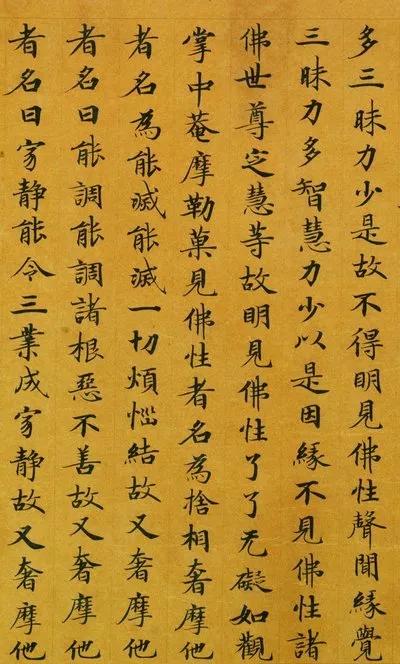 多三昧力少是故不得明見佛性聲聞緣覺
三昧力多智慧力少以是因緣不見佛性諸
佛世尊定慧等故明見佛性了了无礙如觀
掌中菴摩勒菓見佛性者名為捨相奢摩他
者名為能滅能滅一切煩惱結故又奢摩他
者名曰能調能調諸根惡不善故又奢摩他
者名曰寂静能令三業成寂静故又奢摩他